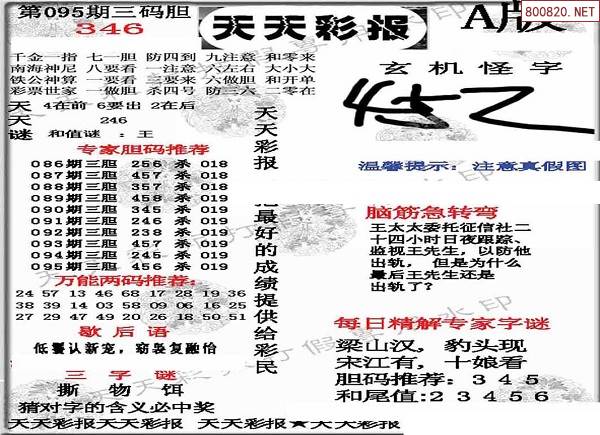 第095期三码胆
346
天天彩报
A版
800820.NET
千金一指 七一胆 防四到 九注意 和零来
南海神尼 八要看 一注意 六左右 大小大
铁公神算 一要看 三要来 六做胆 和开单
彩票世家 一做胆 杀四号 防三六 二零在
天天谜
4在前 6要出 2在后
246
和值谜:王
专家胆码推荐
086期三胆 256 杀 018
087期三胆 457 杀 018
088期三胆 357 杀 018
090期三胆 345 杀 019
091期三胆 246 杀 019
092期三胆 238 杀 019
093期三胆 457 杀 019
094期三胆 245 杀 019
095期三胆 456 杀 019
万能两码推荐:
24 57 13 46 68 17 28 19 36
38 39 14 03 58 09 06 16 25
27 29 47 49 20 26 18 50 51
歇后语
低鬟认新宠,窈窕复融怡
三字谜
撕 物 饵
猜对字的含义必中奖
天天彩报天天彩报 天天彩报★天天彩报
天天彩报
把最好的成绩提供给彩民
玄机怪字
温馨提示:注意真假图
脑筋急转弯
王太太委托征信社二
十四小时日夜跟踪、
监视王先生,以防他
出轨, 但是为什么
最后王先生还是
出轨了?
每日精解专家字谜
梁山汉,豹头现
宋江有,十娘看
胆码推荐:3 4 5
和尾值:2 3 4 5 6